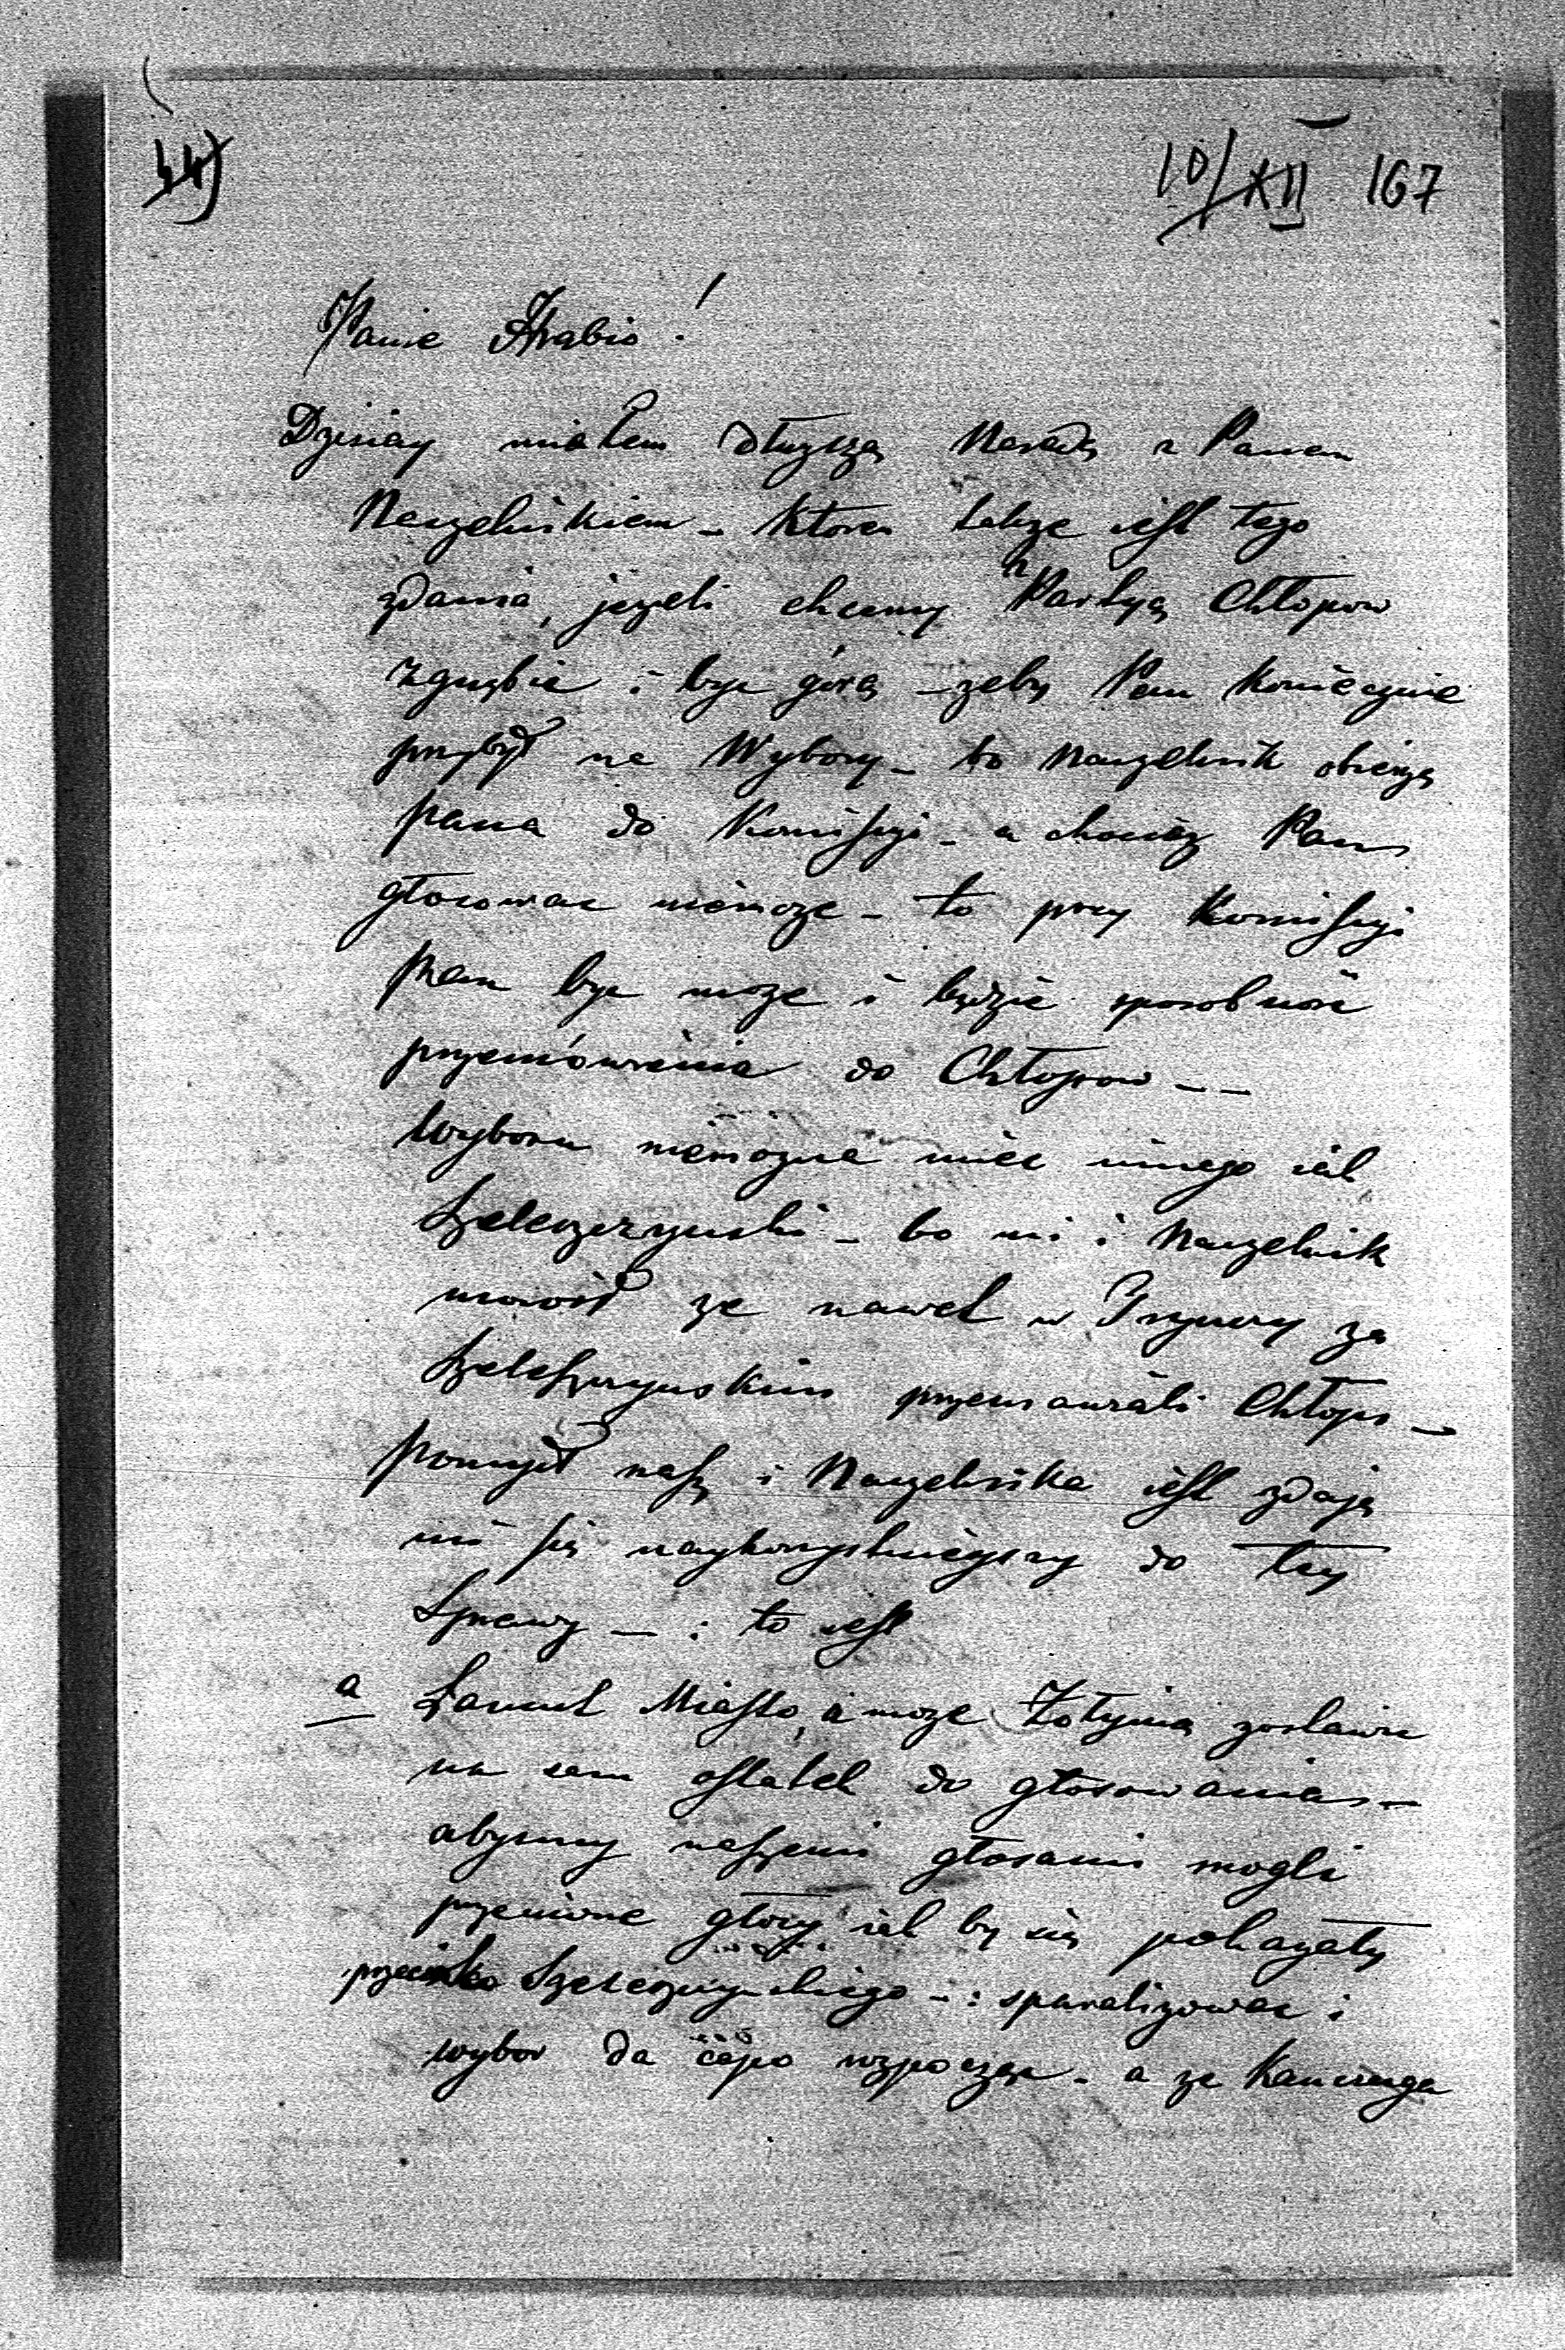 44)
10/XII 167
Panie Hrabio!
Dzisiay miałem dłuzszą Naradę z Panem
Naczelnikiem – ktoren takze jest tego
zdania, jezeli chcemy z Partyą Chłopow
zgnębic i byc górą – zeby Pan koniecznie
przybył na Wybory – bo Naczelnik obierze
pana do Komissyi – a chociaz Pan
głosowac niemoze – to przy Komissyi
pan byc moze i będzie sposobnosc
przemówienia do Chłopow – –
Wyboru niemozna miec innego jak
Szeleszczynski – bo mi i Naczelnik
mowił ze nawet w za
Szeleszczynskim przemawiali Chłopi –
pomysł nasz i Naczelnika jest zdaje
mi się naykorzystnieyszy do tey
Sprawy – : to jest
a Lancut Miasto, a moze Zołynią zostawic
na sam ostatek do głosowania –
abysmy naszemi głosami mogli
przeciwne głosy jak by się pokazały
przeciwko Szeleszczynskiego – : sparalizowac i
wybor da rozpocząc – a ze Kanczuga